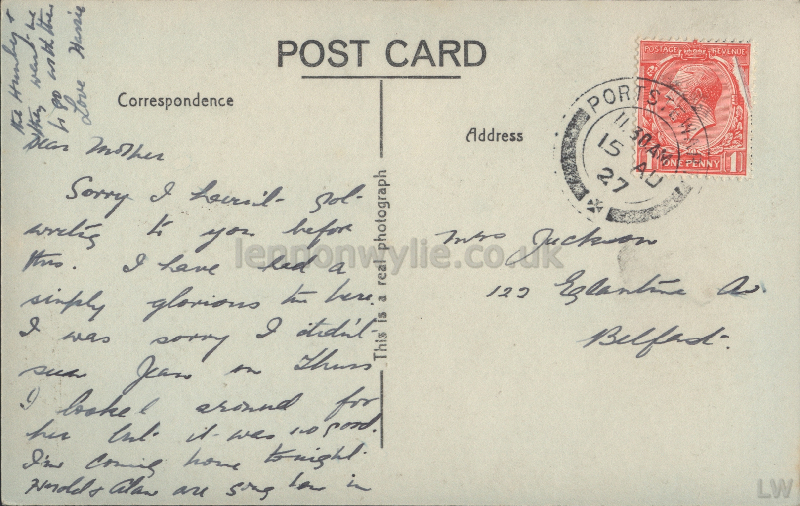 POST CARD
Correspondence
Address
This is a real photograph
POSTAGE REVENUE
1 ONE PENNY 1
PORTS
11.30 AM
15 AU
27
Dear Mother
Sorry I haven't got
writing to you before
this. I have had a
simply glorious time here.
I was sorry I didn't
see Jean on Thurs
I looked around for
her but it was no good.
I'm coming home tonight.
Harold & Alan are going home in
the &
they want me
to go with them
Love
Mrs Jackson
122 Eglantine Av.
Belfast.
lennonwylie.co.uk
LW